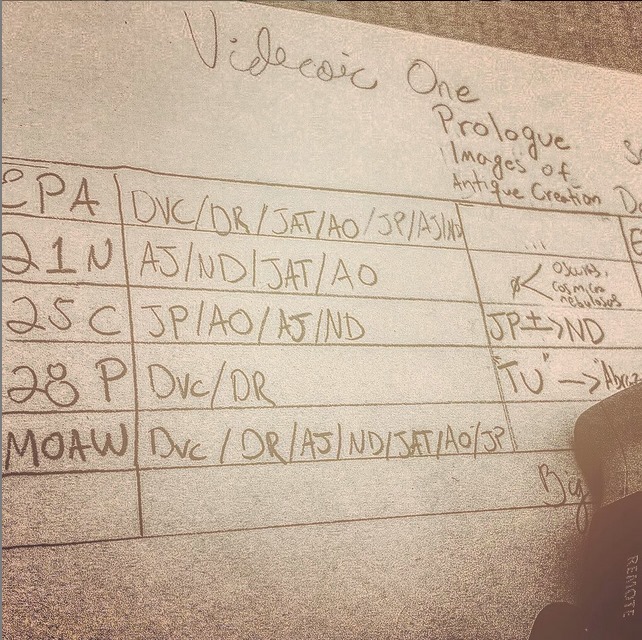 Videoic One
Prologue
Images of
Antique Creation
EPA DVC/DR/JAT/AO/JP/AJ/ND ...
21N AJ/ND/JAT/AO ø< oscuros,
cosmico
nebulosos
25C JP/AO/AJ/ND JP±>ND
28 P DVC/DR "TU" —>
MOAW DVC/DR/AJ/ND/JAT/AO/JP
Big
REMOTE